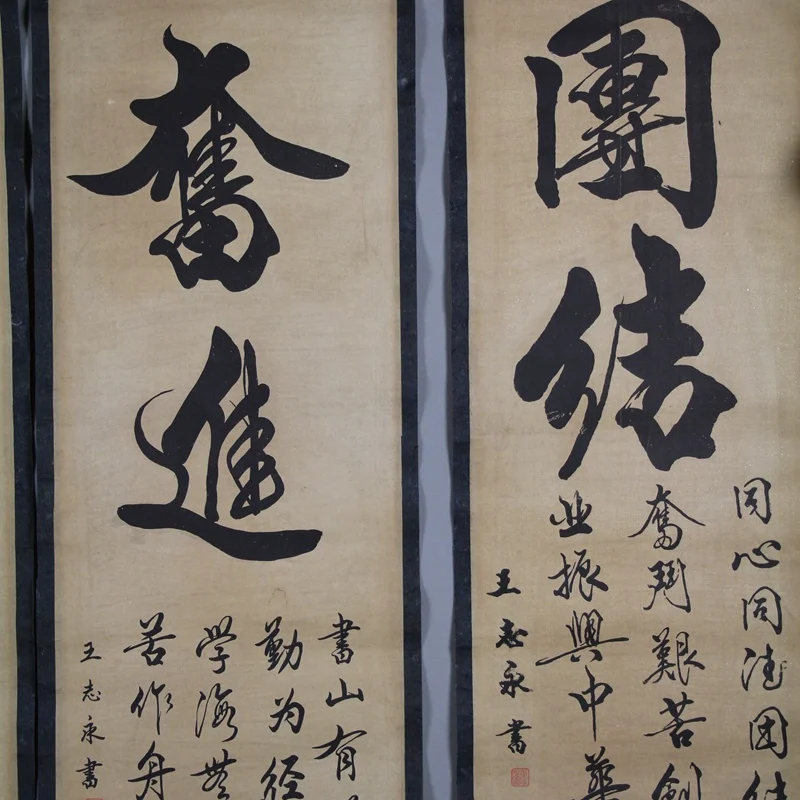 團結
同心同德团结
奮鬥艱苦創
业振興中華
王志永書
奮進
書山有
勤为径
学海無
苦作舟
王志永書